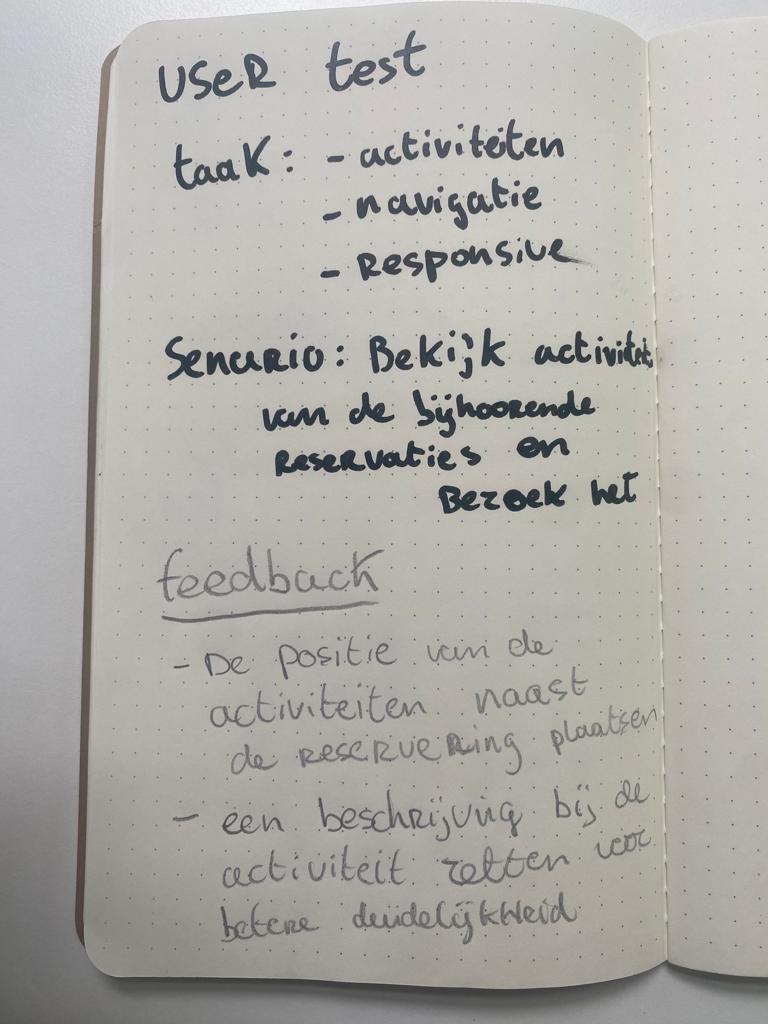 USeR test
taak: - activiteiten
- navigatie
- Responsive
Senario: Bekijk activiteit
van de bijhoorende
Reservaties en
Bezoek het
feedback
- De positie van de
activiteiten naast
de reservering plaatsen
- een beschrijving bij de
activiteit zetten voor
betere duidelijkheid